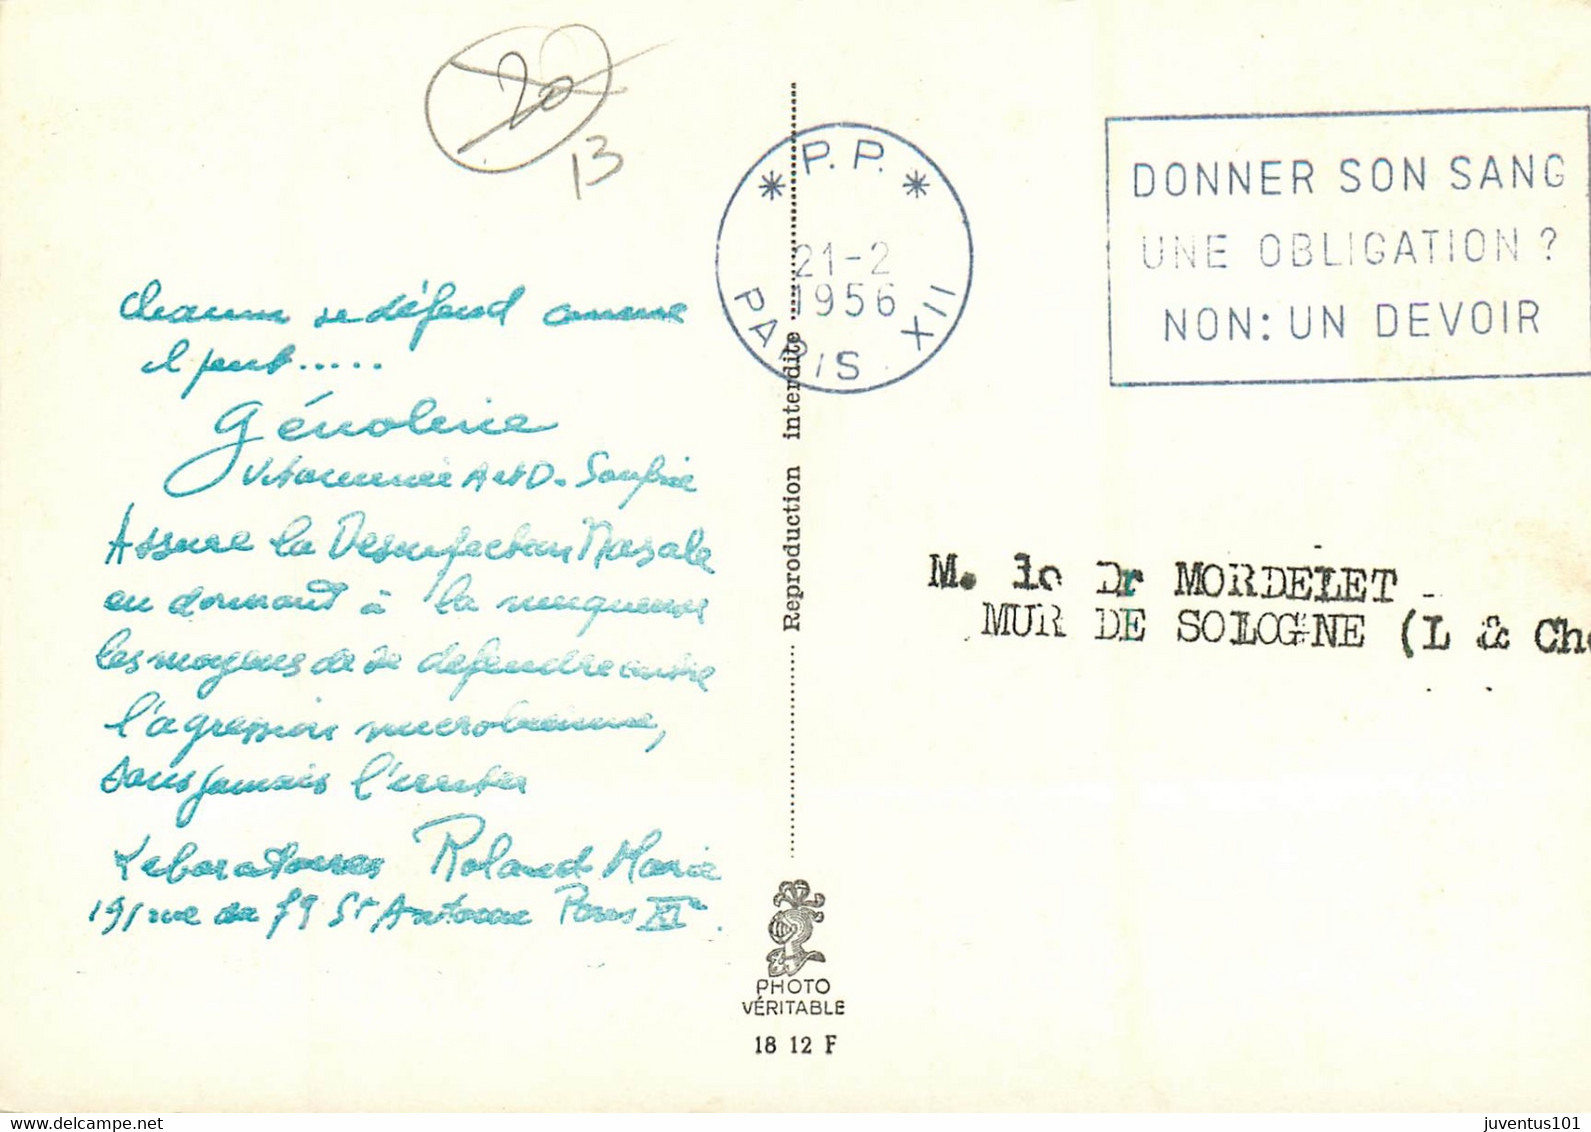 20
13
* P. P. *
21-2
1956
PARIS XII
DONNER SON SANG
UNE OBLIGATION ?
NON: UN DEVOIR
Chacun se défend comme
il peut.....
Génoléine
Vitaminée A et D. Soufrée
Assure la Desinfection Nasale
en donnant à la muqueuse
les moyens de se defendre contre
l'agression microbienne,
sans jamais l'irriter
Laboratoires Roland Marie
191 rue du Fg St Antoine Paris XIe.
Reproduction interdite
M. le Dr MORDELET
MUR DE SOLOGNE (L & Che
PHOTO
VÉRITABLE
18 12 F
juventus101